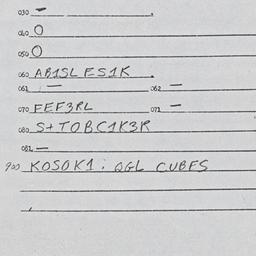 030 –
040 O
050 O
060 AB1SL ES1K .
061 – 062 –
070 FEF3RL 071 –
080 S+TOBC1K3R
081 –
900 KOSOK1 : OGL CUBES